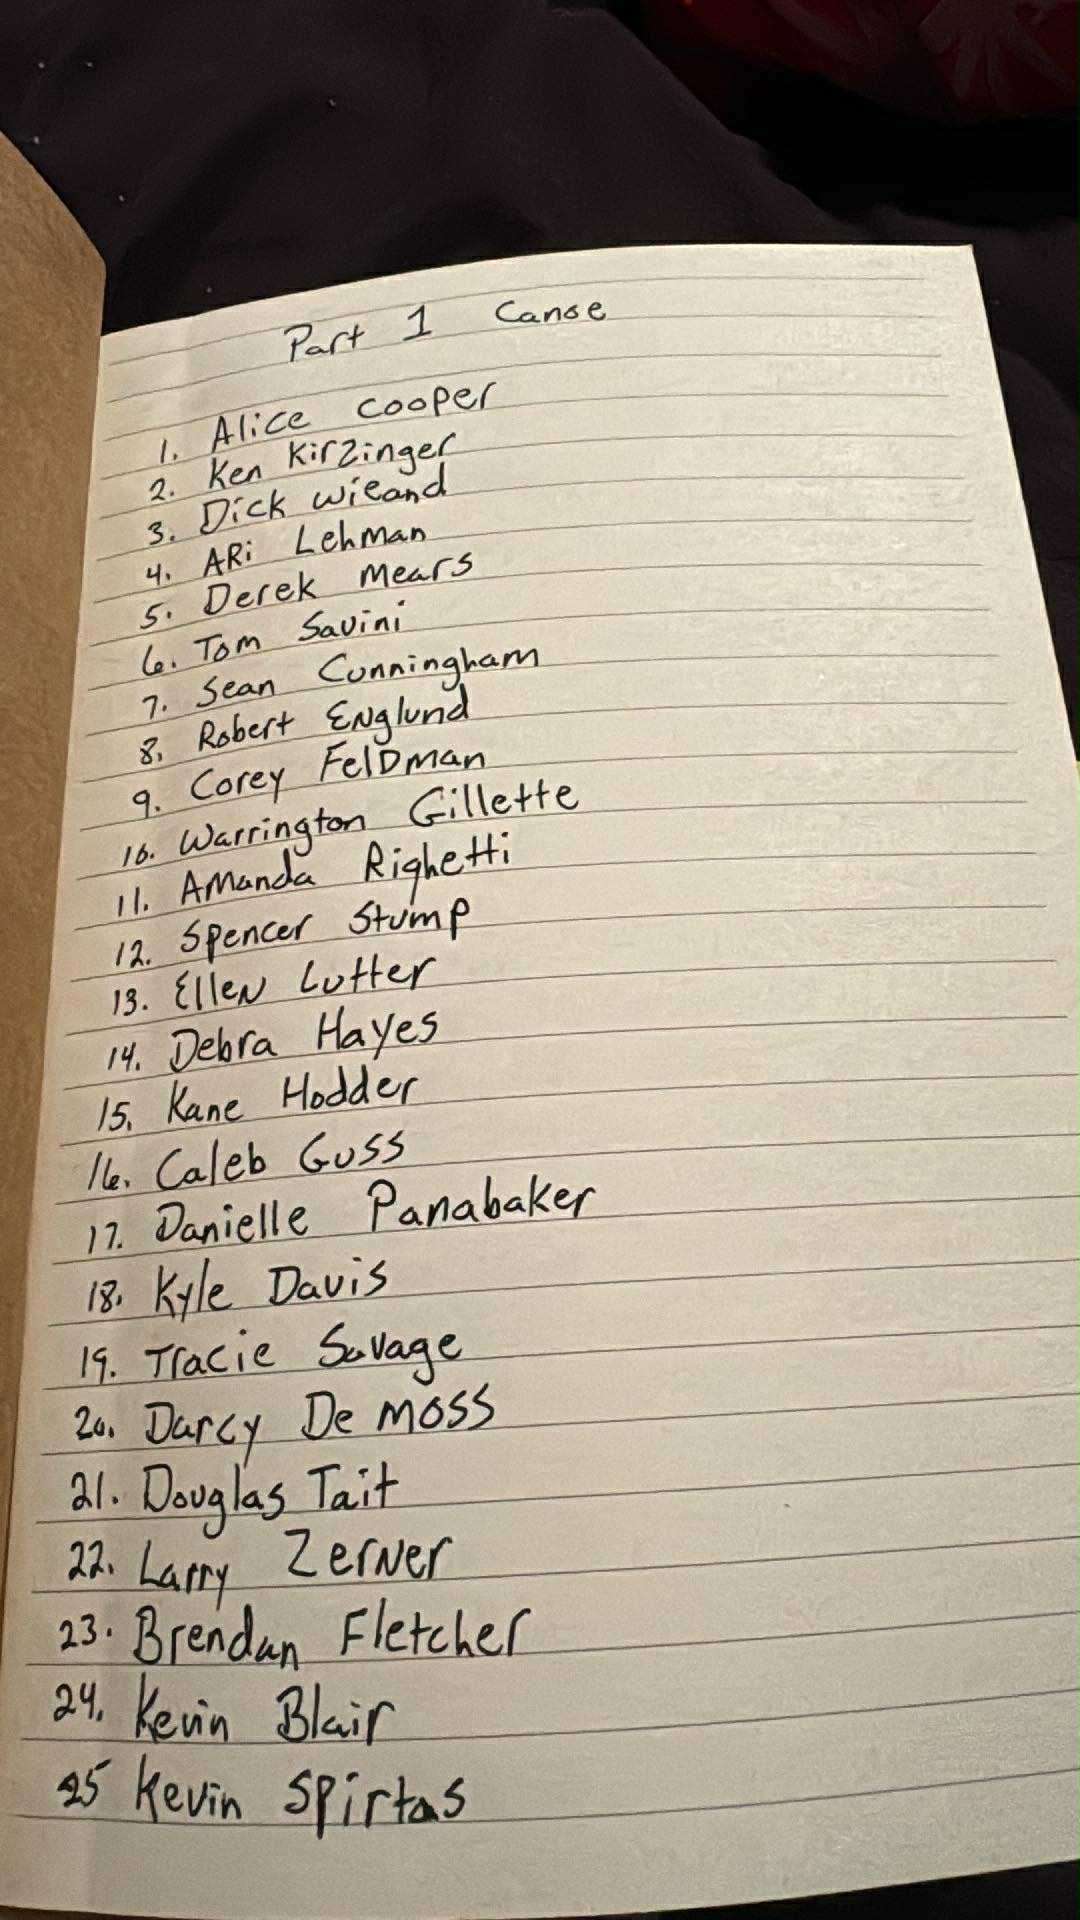 Part 1 Canoe
1. Alice Cooper
2. Ken Kirzinger
3. Dick Wieand
4. ARi Lehman
5. Derek Mears
6. Tom Savini
7. Sean Cunningham
8. Robert Englund
9. Corey Feldman
10. Warrington Gillette
11. Amanda Righetti
12. Spencer Stump
13. Ellen Lutter
14. Debra Hayes
15. Kane Hodder
16. Caleb Guss
17. Danielle Panabaker
18. Kyle Davis
19. Tracie Savage
20. Darcy De moss
21. Douglas Tait
22. Larry Zerner
23. Brendan Fletcher
24. Kevin Blair
25 Kevin Spirtas